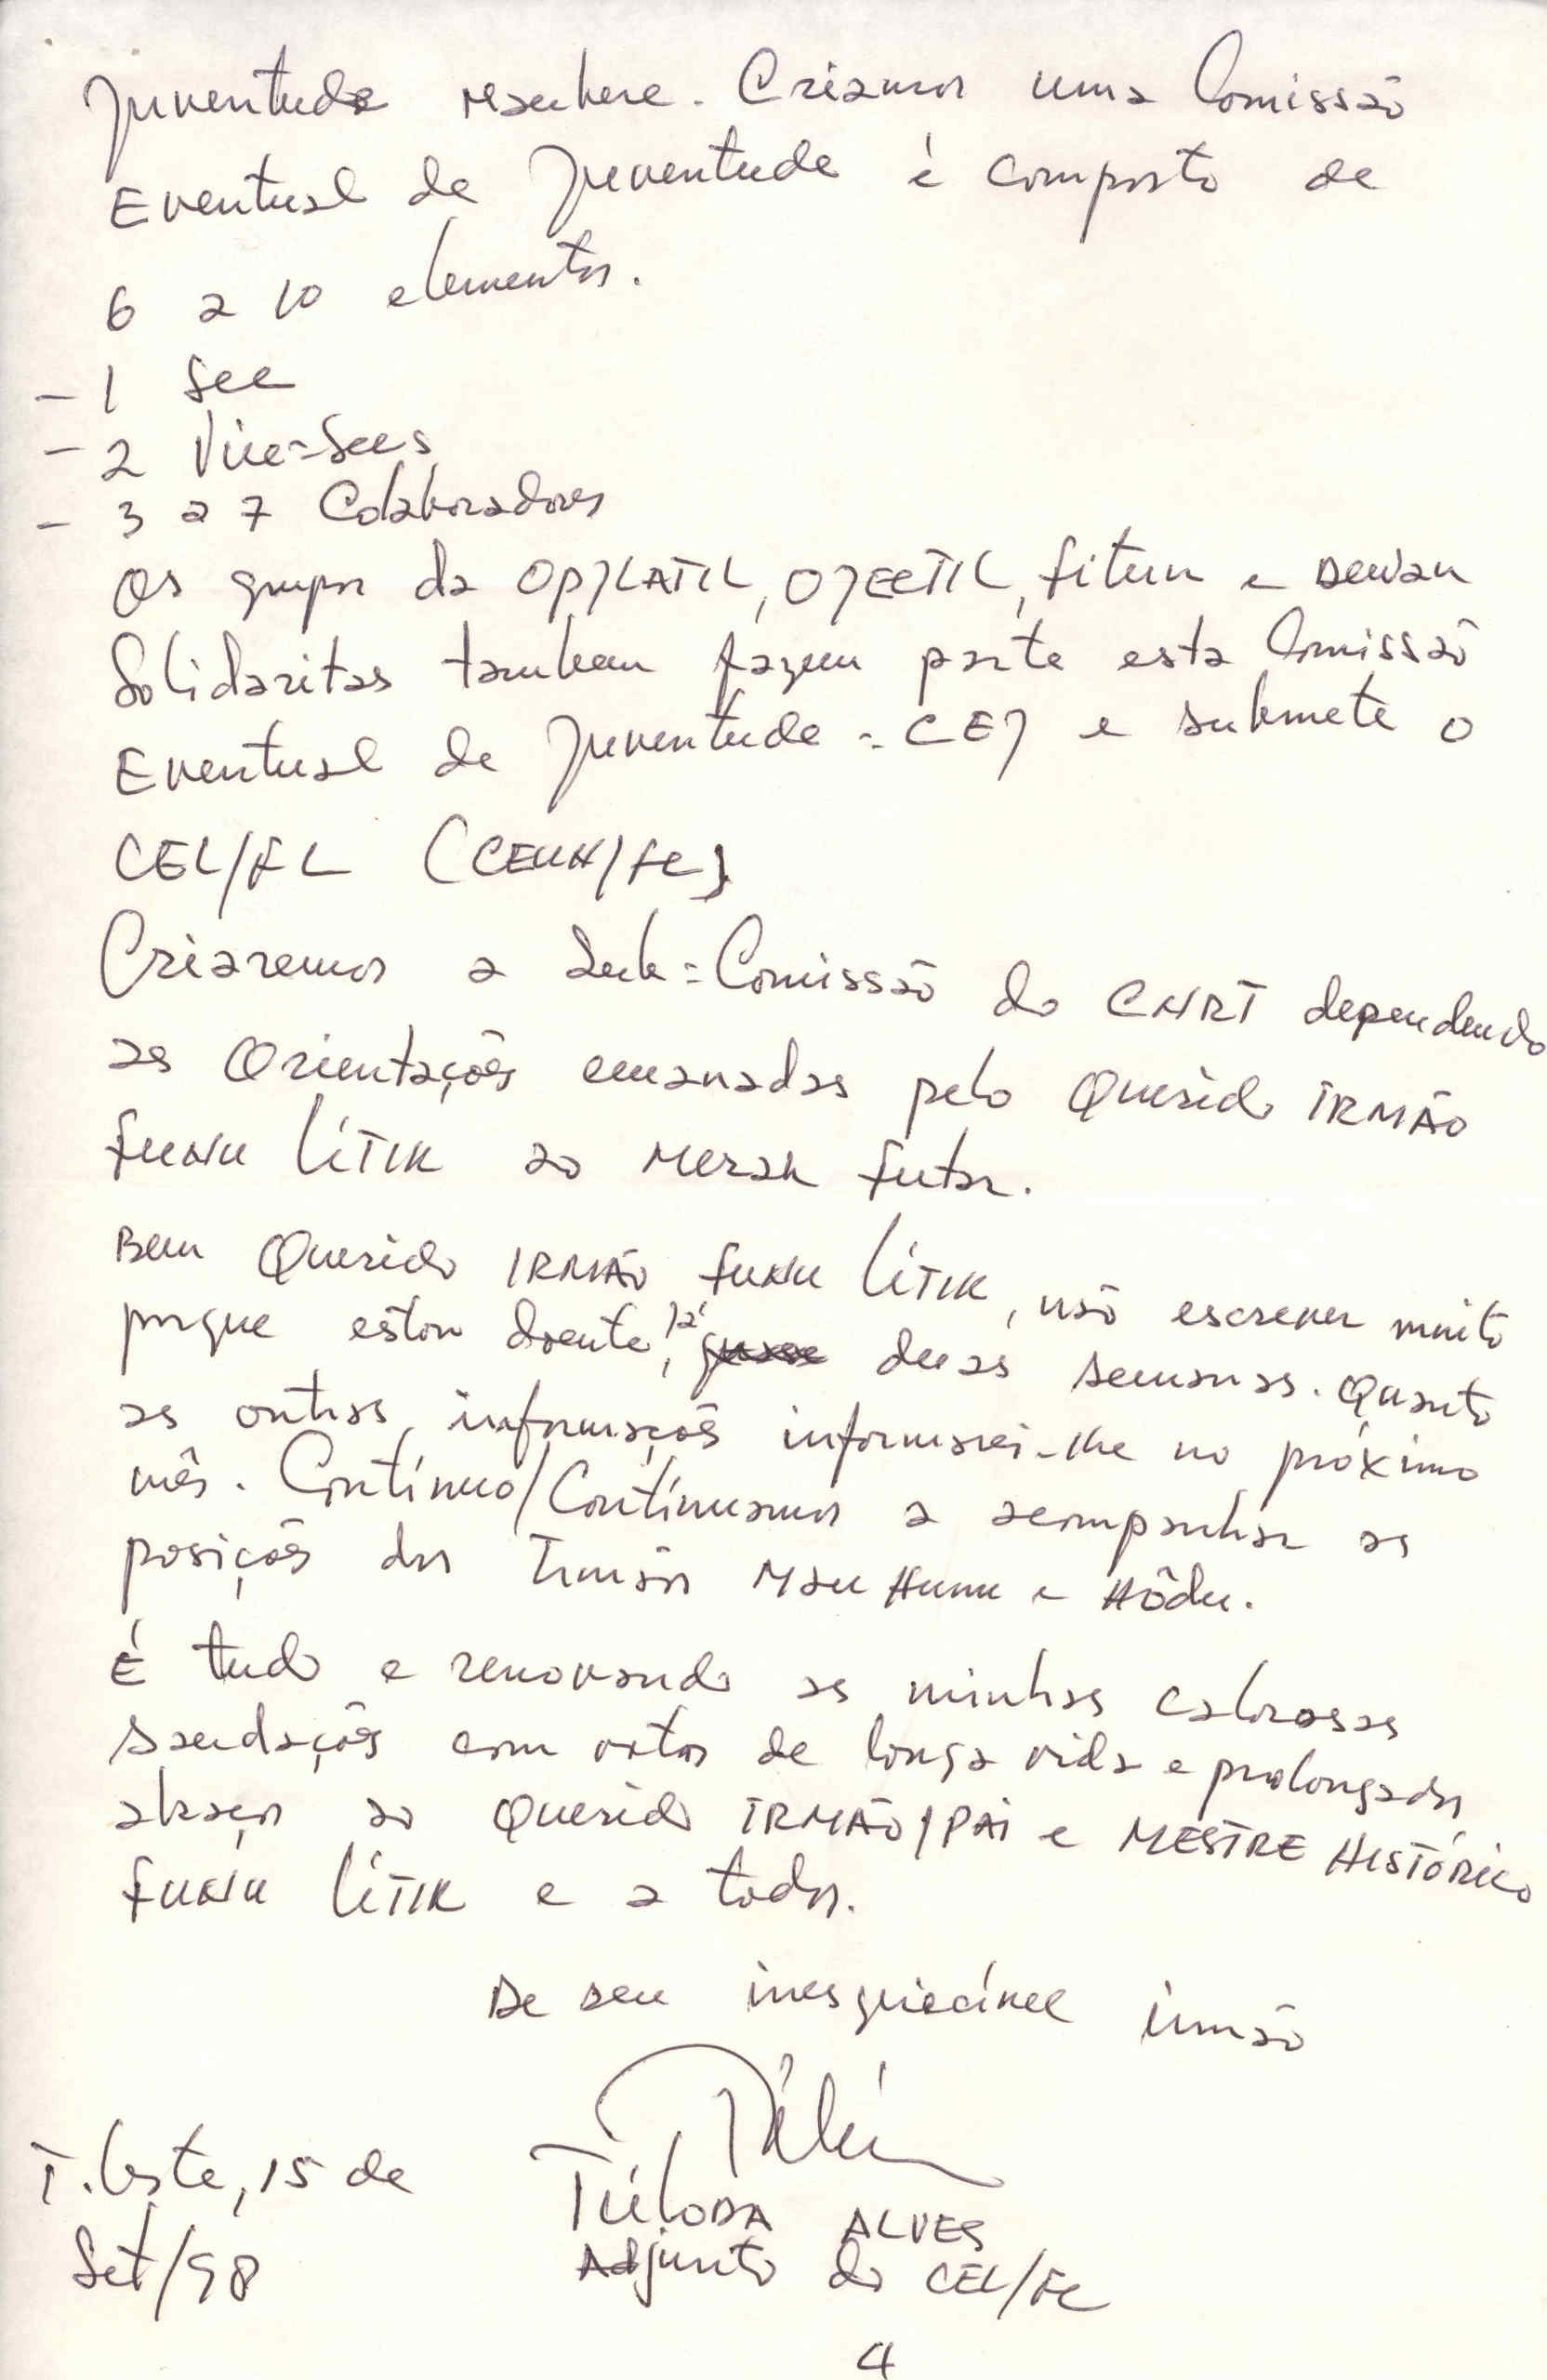 Juventude maubere. Criamos uma Comissão
Eventual de Juventude é composto de
6 a 10 elementos.
- 1 Sec
- 2 Vice=Secs
- 3 a 7 Colaboradores
Os grupos da OPJLATIL, OJECTIL, Fitun e Dewan
Solidaritas tambem fazem parte esta Comissão
Eventual de Juventude = CEJ e submete o
CEL/FL (CEUN/FL)
Criaremos a Sub=Comissão do CNRT dependendo
as Orientações emanadas pelo Querido IRMÃO
FUNU LÍTIK ao Merak Futar.
Bem Querido IRMÃO FUNU LÍTIK, não escrever muito
porque estou doente, já duas semanas. Quanto
as outras informações informarei-lhe no próximo
mês. Contínuo/Contínuamos a acompanhar as
posições dos Irmãos Mau Hunu e Hôdu.
É tudo e renovando as minhas calorosas
saudações com votos de longa vida e prolongados
abraços ao Querido IRMÃO/PAI e MESTRE HISTÓRICO
FUNU LÍTIK e a todos.
De seu inesquiecível irmão
T. Leste, 15 de
Set/98
TÚLODA ALVES
Adjunto do CEL/FL
4